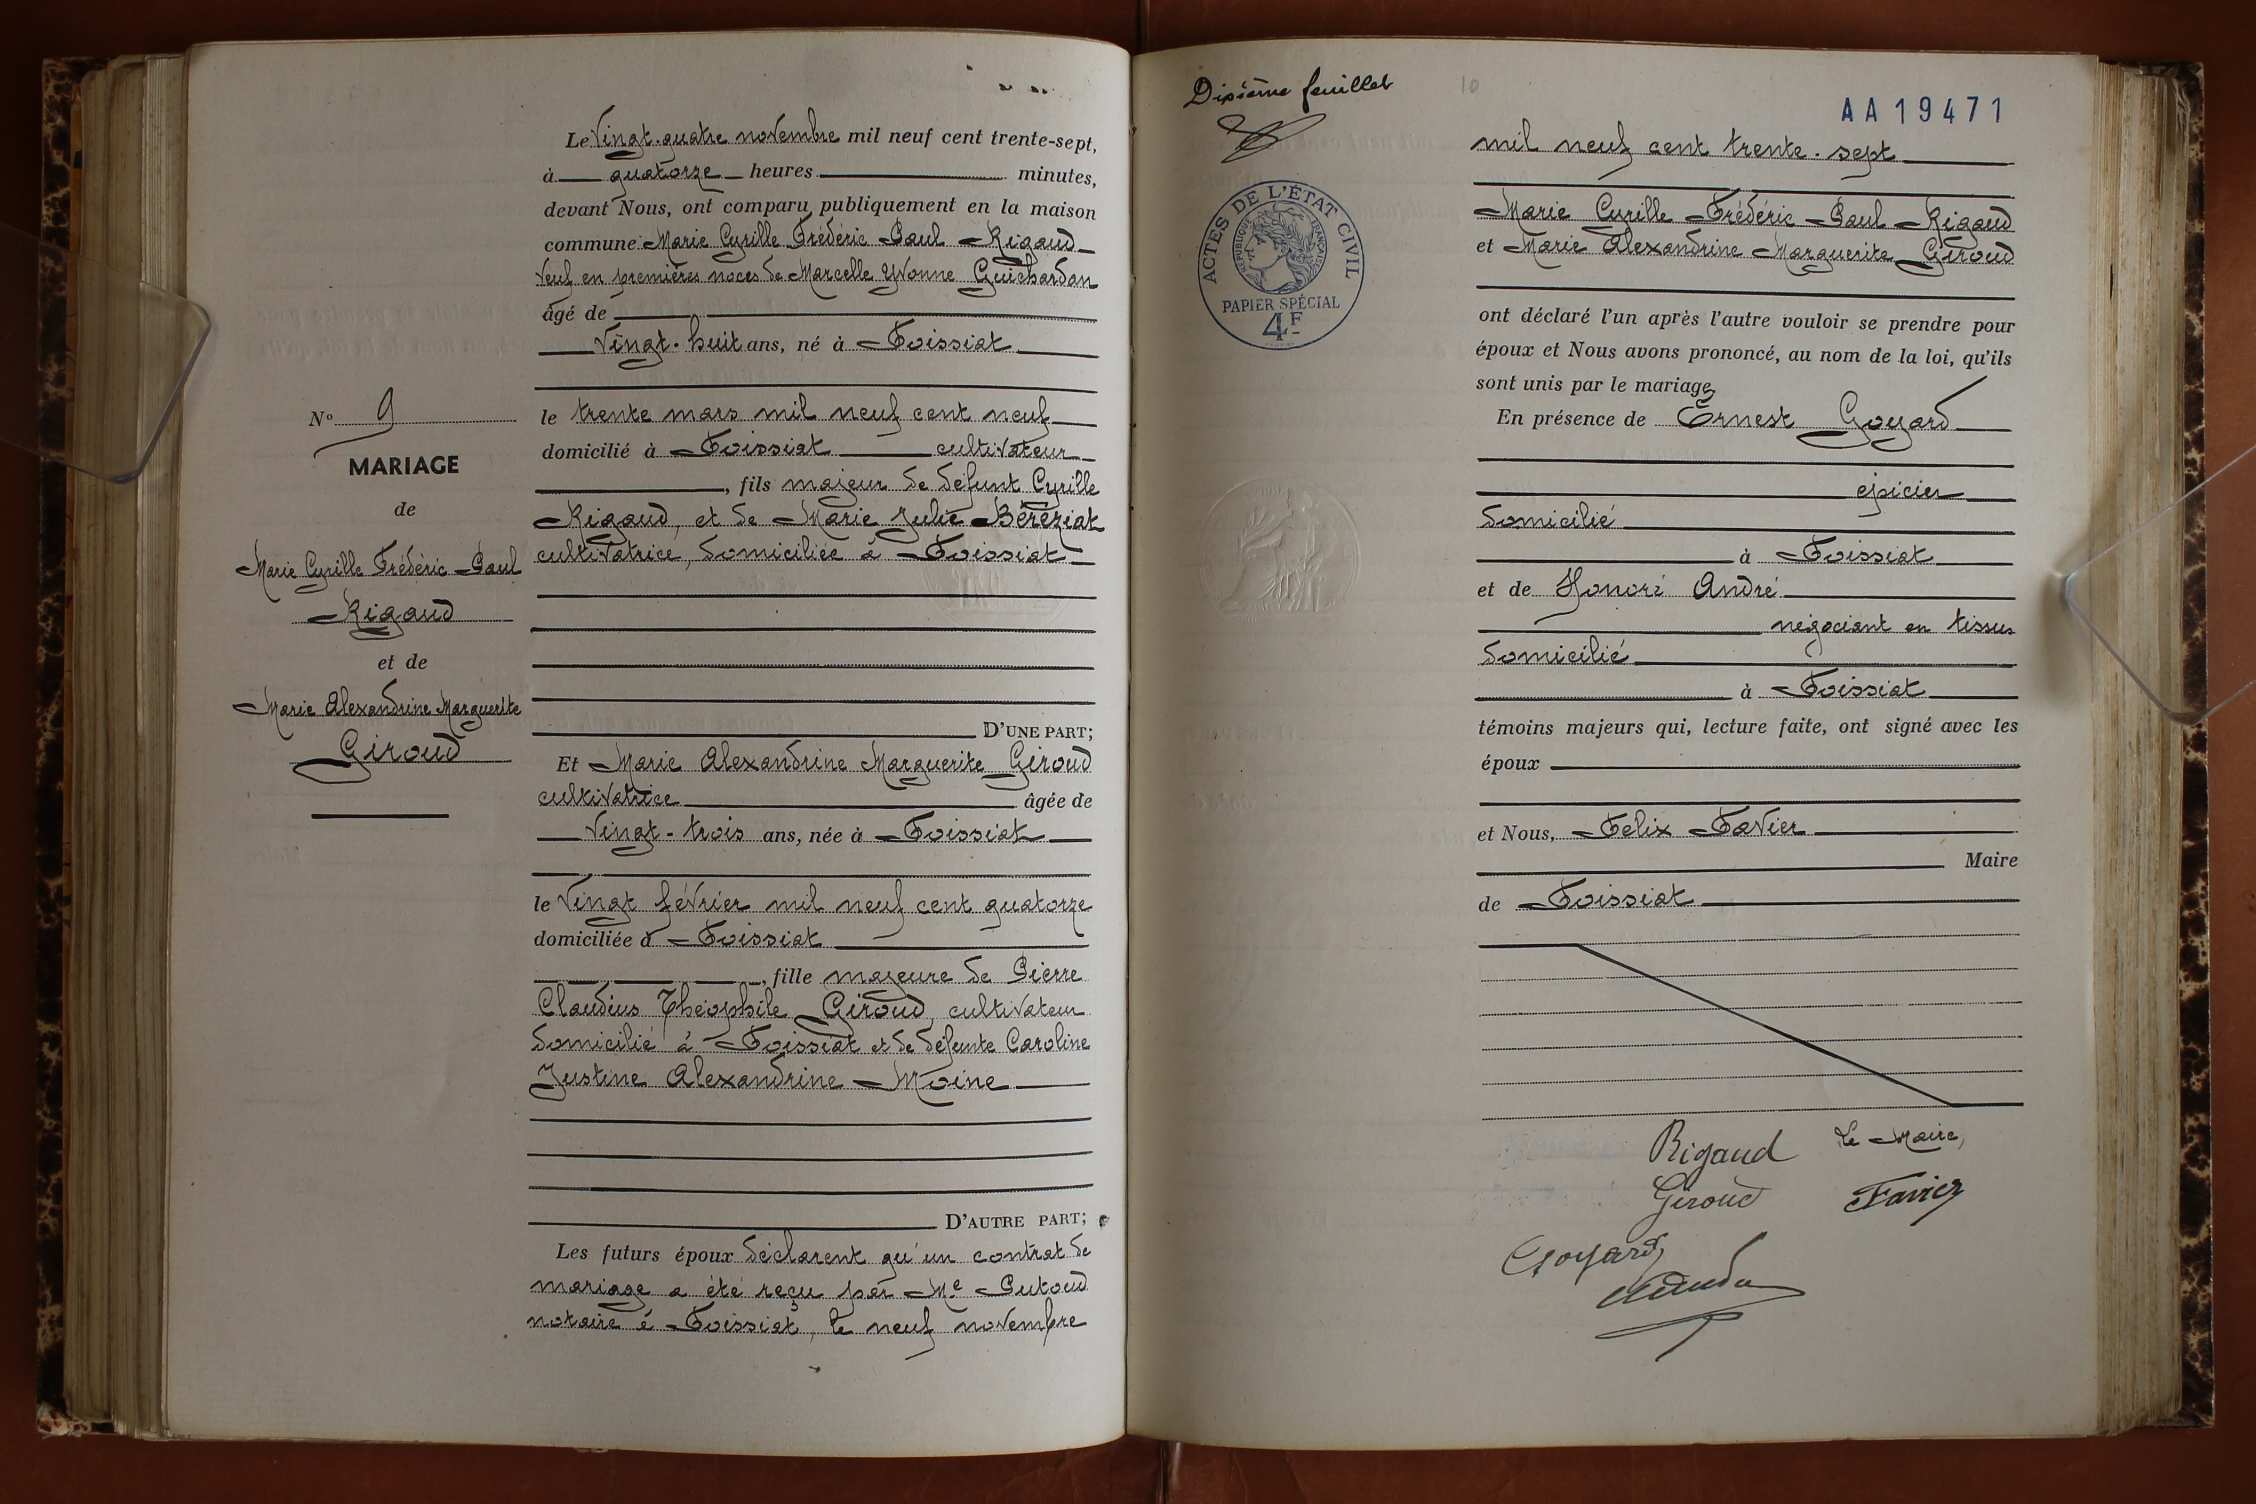 Le Vingt-quatre novembre mil neuf cent trente-sept,
à quatorze heures minutes,
devant Nous, ont comparu publiquement en la maison
commune: Marie Cyrille Frédéric Paul Rigaud
Veuf en premières noces de Marcelle Yvonne Guichardon
âgé de
Vingt-huit ans, né à Foissiat
le trente mars mil neuf cent neuf
domicilié à Foissiat cultivateur
, fils majeur de défunt Cyrille
Rigaud, et de Marie Julie Béréziat
cultivatrice, domiciliée à Foissiat
D'UNE PART;
Et Marie Alexandrine Marguerite Giroud
cultivatrice âgée de
Vingt-trois ans, née à Foissiat
le Vingt février mil neuf cent quatorze
domiciliée à Foissiat
, fille majeure de Pierre
Claudius Théophile Giroud, cultivateur
domicilié à Foissiat et de défunte Caroline
Justine Alexandrine Moine
D'AUTRE PART;
Les futurs époux déclarent qu'un contrat de
mariage a été reçu par Me Putoud
notaire à Foissiat, le neuf novembre
No 9
MARIAGE
de
Marie Cyrille Frédéric Paul
Rigaud
et de
Marie Alexandrine Marguerite
Giroud
Dixième feuillet
10
AA19471
ACTES DE L'ÉTAT CIVIL
RÉPUBLIQUE FRANÇAISE
PAPIER SPÉCIAL
4F
mil neuf cent trente-sept
Marie Cyrille Frédéric Paul Rigaud
et Marie Alexandrine Marguerite Giroud
ont déclaré l'un après l'autre vouloir se prendre pour
époux et Nous avons prononcé, au nom de la loi, qu'ils
sont unis par le mariage
En présence de Ernest Goyard
epicier
domicilié
à Foissiat
et de Honoré André
négociant en tissus
domicilié
à Foissiat
témoins majeurs qui, lecture faite, ont signé avec les
époux
et Nous, Félix Favier
Maire
de Foissiat
Rigaud Le Maire,
Giroud Favier
Goyard